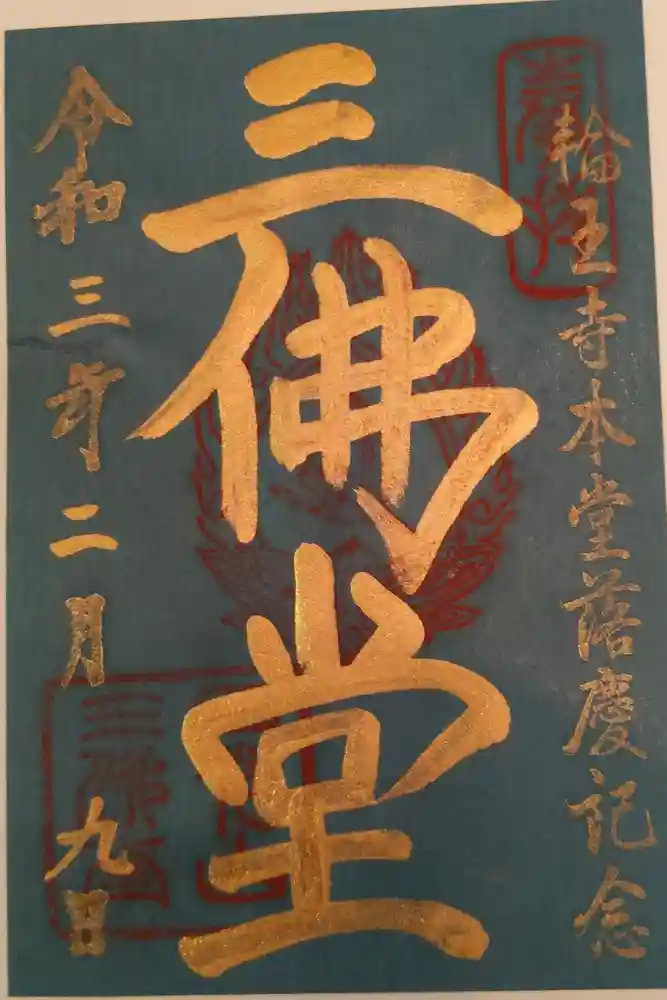 輪王寺本堂落慶記念
三佛堂
令和三年二月九日